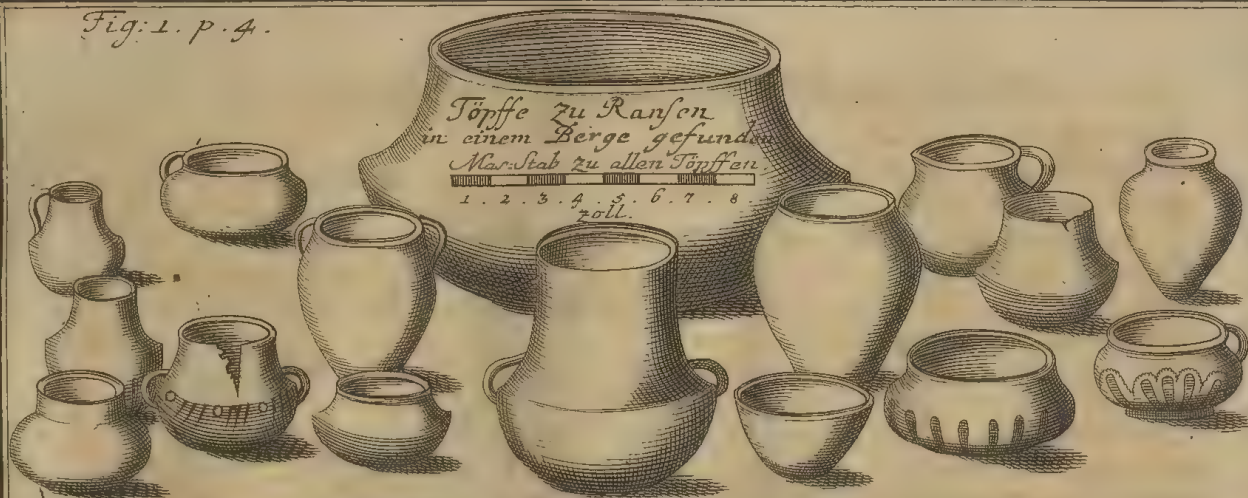 Fig: 1. p. 4.
Töpffe zu Ranſen
in einem Berge gefunden
Mas:Stab zu allen Töpffen
1 . 2 . 3 . 4 . 5 . 6 . 7 . 8 .
zoll.